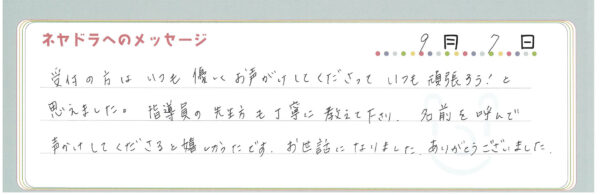 ネヤドラへのメッセージ
9月 7日
受付の方は いつも 優しく お声がけしてくださって いつも 頑張ろう!と
思えました。 指導員の 先生方も 丁寧に 教えて下さり、 名前を呼んで
声かけしてくださると嬉しかったです。 お世話に なりました。ありがとうございました。